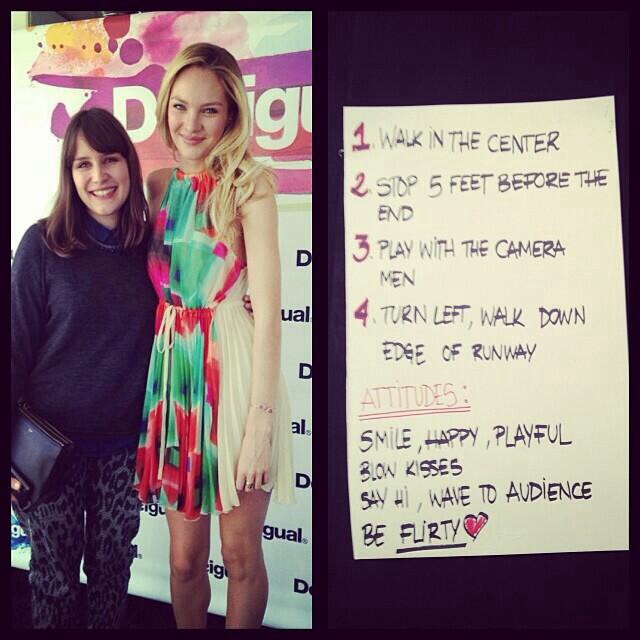 Desigu
De
ual.
D
al.
De
igual.
De
1. WALK IN THE CENTER
2. STOP 5 FEET BEFORE THE
END
3. PLAY WITH THE CAMERA
MEN
4. TURN LEFT, WALK DOWN
EDGE OF RUNWAY
ATTITUDES:
SMILE, HAPPY, PLAYFUL
BLOW KISSES
SAY HI, WAVE TO AUDIENCE
BE FLIRTY